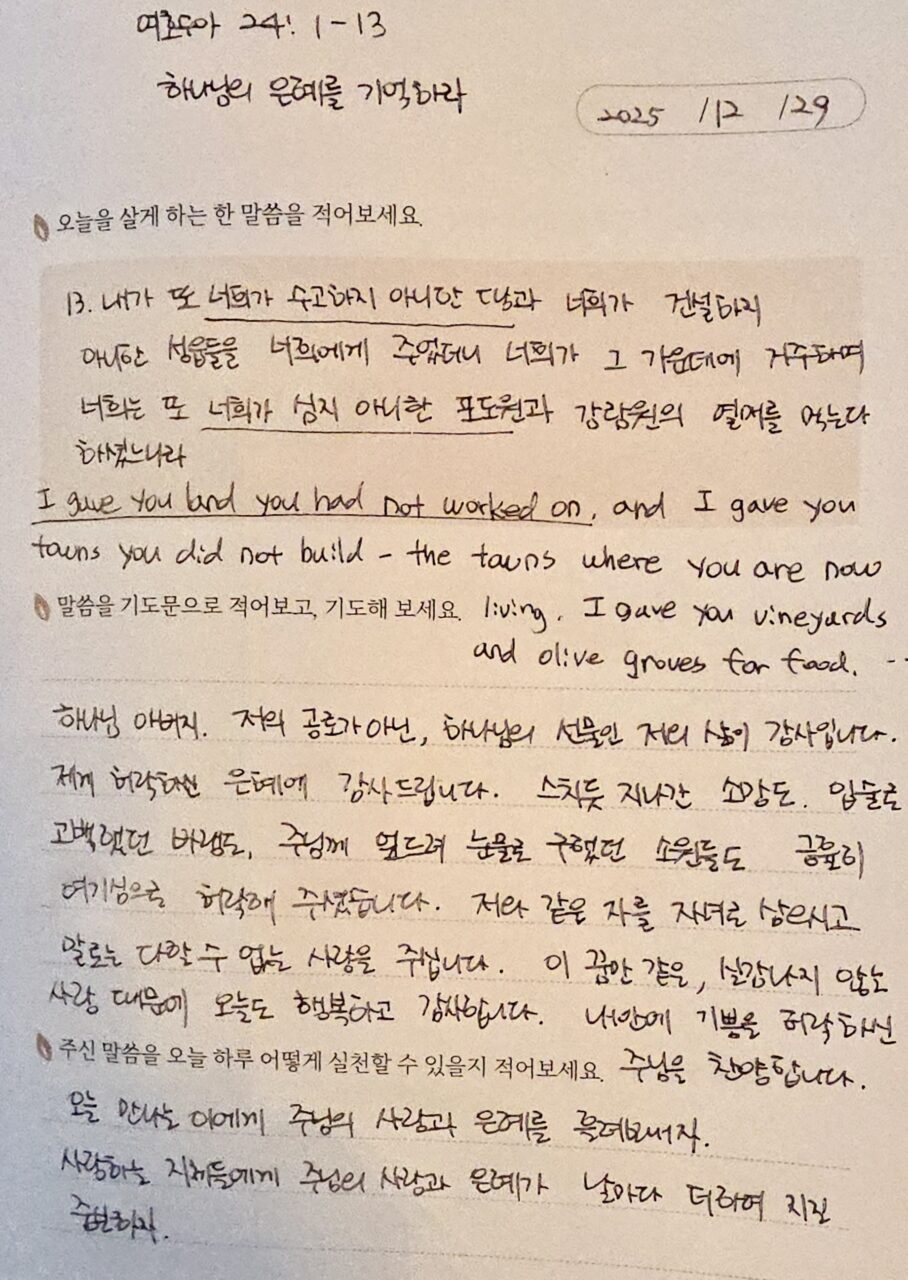 여호수아 24: 1-13
하나님의 은혜를 기억하라
2025 /12 /29
오늘을 살게 하는 한 말씀을 적어보세요.
13. 내가 또 너희가 수고하지 아니한 땅과 너희가 건설하지
아니한 성읍들을 너희에게 주었더니 너희가 그 가운데에 거주하며
너희는 또 너희가 심지 아니한 포도원과 감람원의 열매를 먹는다
하셨느니라
I gave you land you had not worked on, and I gave you
towns you did not build - the towns where you are now
말씀을 기도문으로 적어보고, 기도해 보세요. living. I gave you vineyards
and olive groves for food. --
하나님 아버지. 저의 공로가 아닌, 하나님의 선물인 저의 삶이 감사입니다.
제게 허락하신 은혜에 감사드립니다. 스치듯 지나간 소망도. 입술로
고백했던 바램도, 주님께 엎드려 눈물로 구했던 소원들도 긍휼히
여기심으로 허락해 주셨습니다. 저와 같은 자를 자녀로 삼으시고
말로는 다할 수 없는 사랑을 주십니다. 이 꿈만 같은, 실감나지 않는
사랑 때문에 오늘도 행복하고 감사합니다. 내안에 기쁨을 허락하신
주신 말씀을 오늘 하루 어떻게 실천할 수 있을지 적어보세요. 주님을 찬양합니다.
오늘 만나는 이에게 주님의 사랑과 은혜를 흘려보내자.
사랑하는 지체들에게 주님의 사랑과 은혜가 날마다 더하여 지길